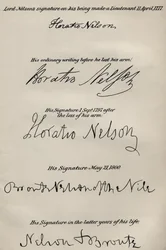 Lord Nelson's signature on his being made a Lieutenant 11 April, 1777
Horatio Nelson.
His ordinary writing before he lost his arm:
Horatio Nelson
His Signature 1 Sept 1797 after
the loss of his arm:
Horatio Nelson
His Signature May 21, 1800
Bronte Nelson of the Nile
His Signature in the latter years of his life:
Nelson & Bronte